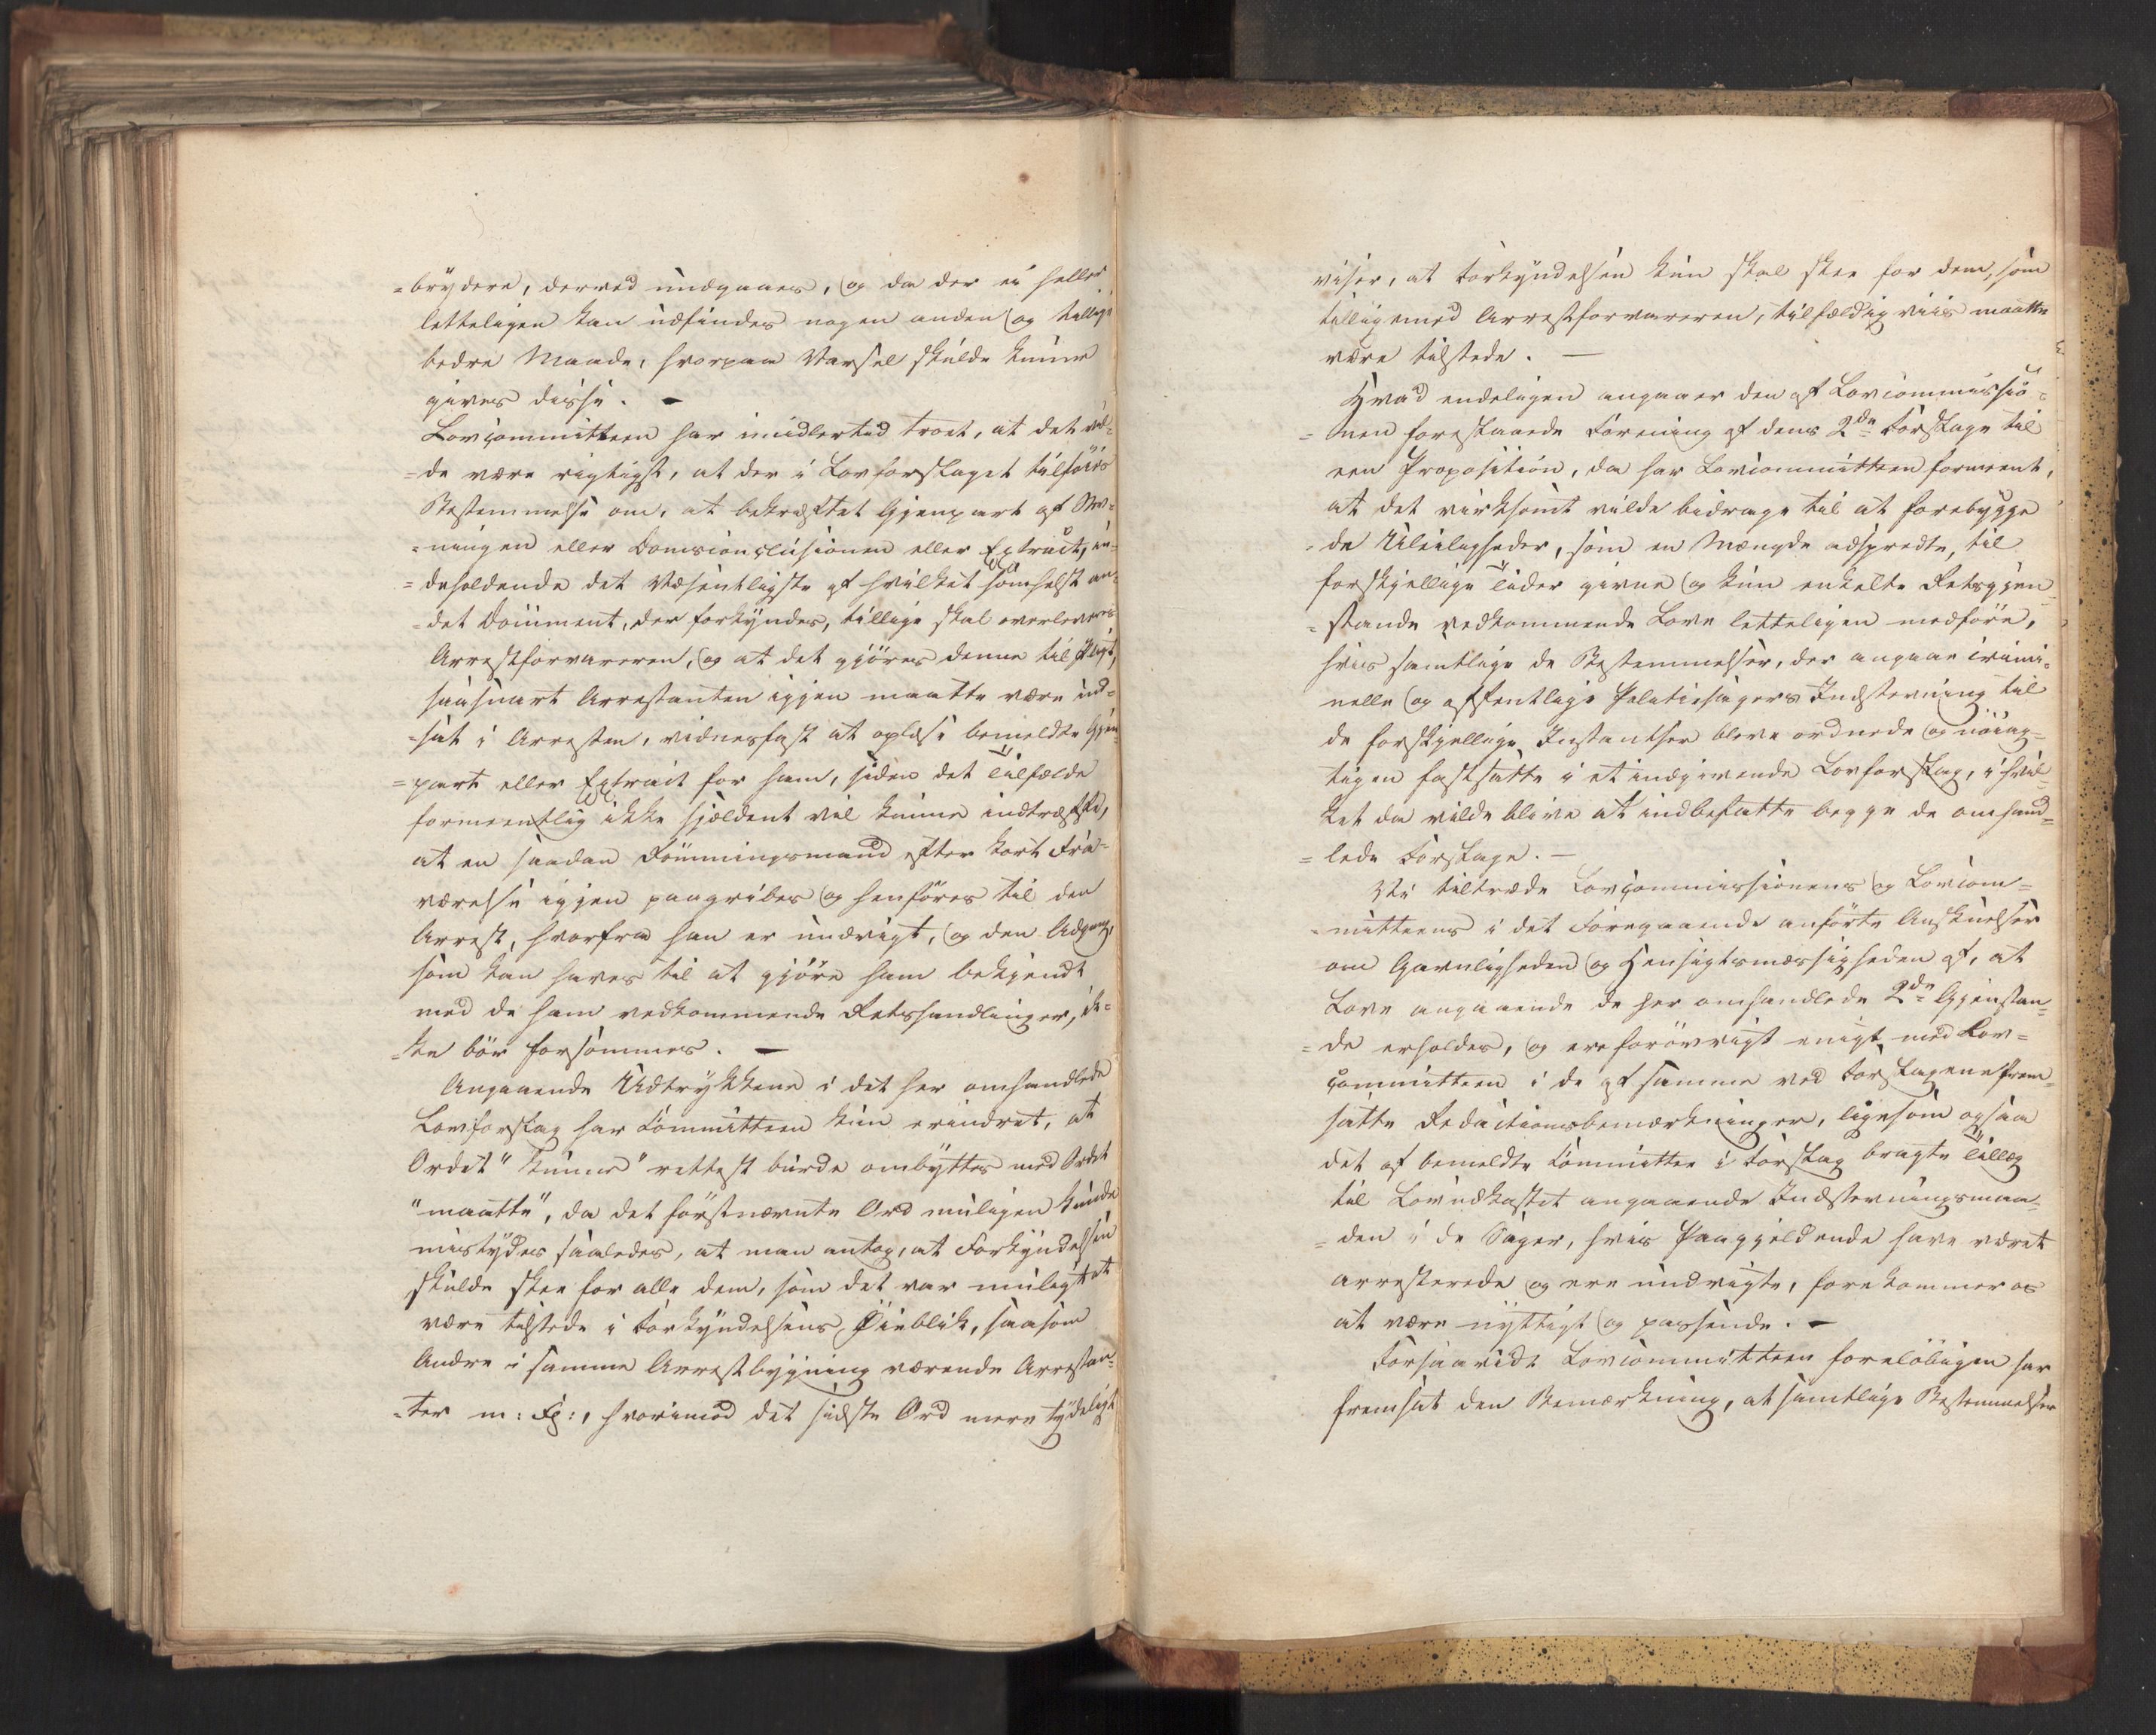 =brydere, derved undgaaes, og da der ei heller
letteligen kan udfindes nogen anden og tillige
bedre Maade, hvorpaa Varsel skulde kunne
gives disse. –
Lovcommitteen har imidlertid troet, at det vil-
=de være rigtigst, at der i Lovforslaget tilföies
Bestemmelse om, at bekræftet Gjenpart af Stev-
=ningen eller Domsconclusionen eller Extract, in-
=deholdende det Væsentligste af hvilket somhelst an-
=det Document, der forkyndes, tillige skal overleveres
Arrestforvareren, og at det gjöres denne til Pligt,
saasnart Arrestanten igjen maatte være ind-
=sat i Arresten, vidnesfast at oplæse bemeldte Gjen-
=part eller Extract for ham, siden det Tilfælde
formeentlig ikke sjeldent vil kunne indtræffe,
at en saadan Römningsmand efter kort Fra-
værelse igjen paagribes og henföres til den
Arrest, hvorfra han er undvigt, og den Adgang,
som kan haves til at gjöre ham bekjendt
med de ham vedkommende Retshandlinger, ik-
=ke bör forsömmes. –
Angaaende Udtrykkene i det her omhandlede
Lovforslag har Committeen kun erindret, at
Ordet "kunne" rettest burde ombyttes med Ordet
"maatte", da det förstnævnte Ord muligen kunde
mistydes saaledes, at man antog, at Forkyndelsen
skulde skee for alle dem, som det var muligt at
være tilstede i Forkyndelsens Öieblik, saasom
Andre i samme Arrestbygning værende Arrestan-
=ter m: Fl:, hvorimod det sidste Ord mere tydeligt
viser, at Forkyndelsen kun skal skee for dem, som
tilligemed Arrestforvareren, tilfældigviis maatte
være tilstede. –
Hvad endeligen angaaer den af Lovcommissio-
=nen foreslaaede Forening af dens 2de Forslage til
een Proposition, da har Lovcommitteen formeent,
at det virksomt vilde bidrage til at forebygge
de Uleiligheder, som en Mængde adspredte, til
forskjellige Tider givne og kun enkelte Retsgjen-
=stande vedkommende Love letteligen medföre,
hvis samtlige de Bestemmelser, der angaae crimi-
nelle og offentlige Politiesagers Indstevning til
de forskjellige Instantser bleve ordnede og nöiag-
tigen fastsatte i et indgivende Lovforslag, i hvil-
ket da vilde blive at indbefatte begge de omhand-
=lede Forslage. –
Vi tiltræde Lovcommissionens og Lovcom-
=mitteens i det Foregaaende anförte Anskuelser
om Gavnligheden og Hensigtsmæssigheden af, at
Love angaaende de her omhandlede 2de Gjenstan-
=de erholdes, og ere forövrigt enigt med Lov-
committeen i de af samme ved Forslagene frem-
satte Redactionsbemærkninger, ligesom ogsaa
det af bemeldte Committee i Forslag bragte Tillæg
til Lovudkastet angaaende Indstevningsmaa-
=den i de Sager, hvis Paagjeldende have været
arresterede og ere undvigte, forekommer os
at være nyttigt og passende. –
Forsaavidt Lovcommitteen forelöbigen har
fremsat den Bemærkning, at samtlige Bestemmelser